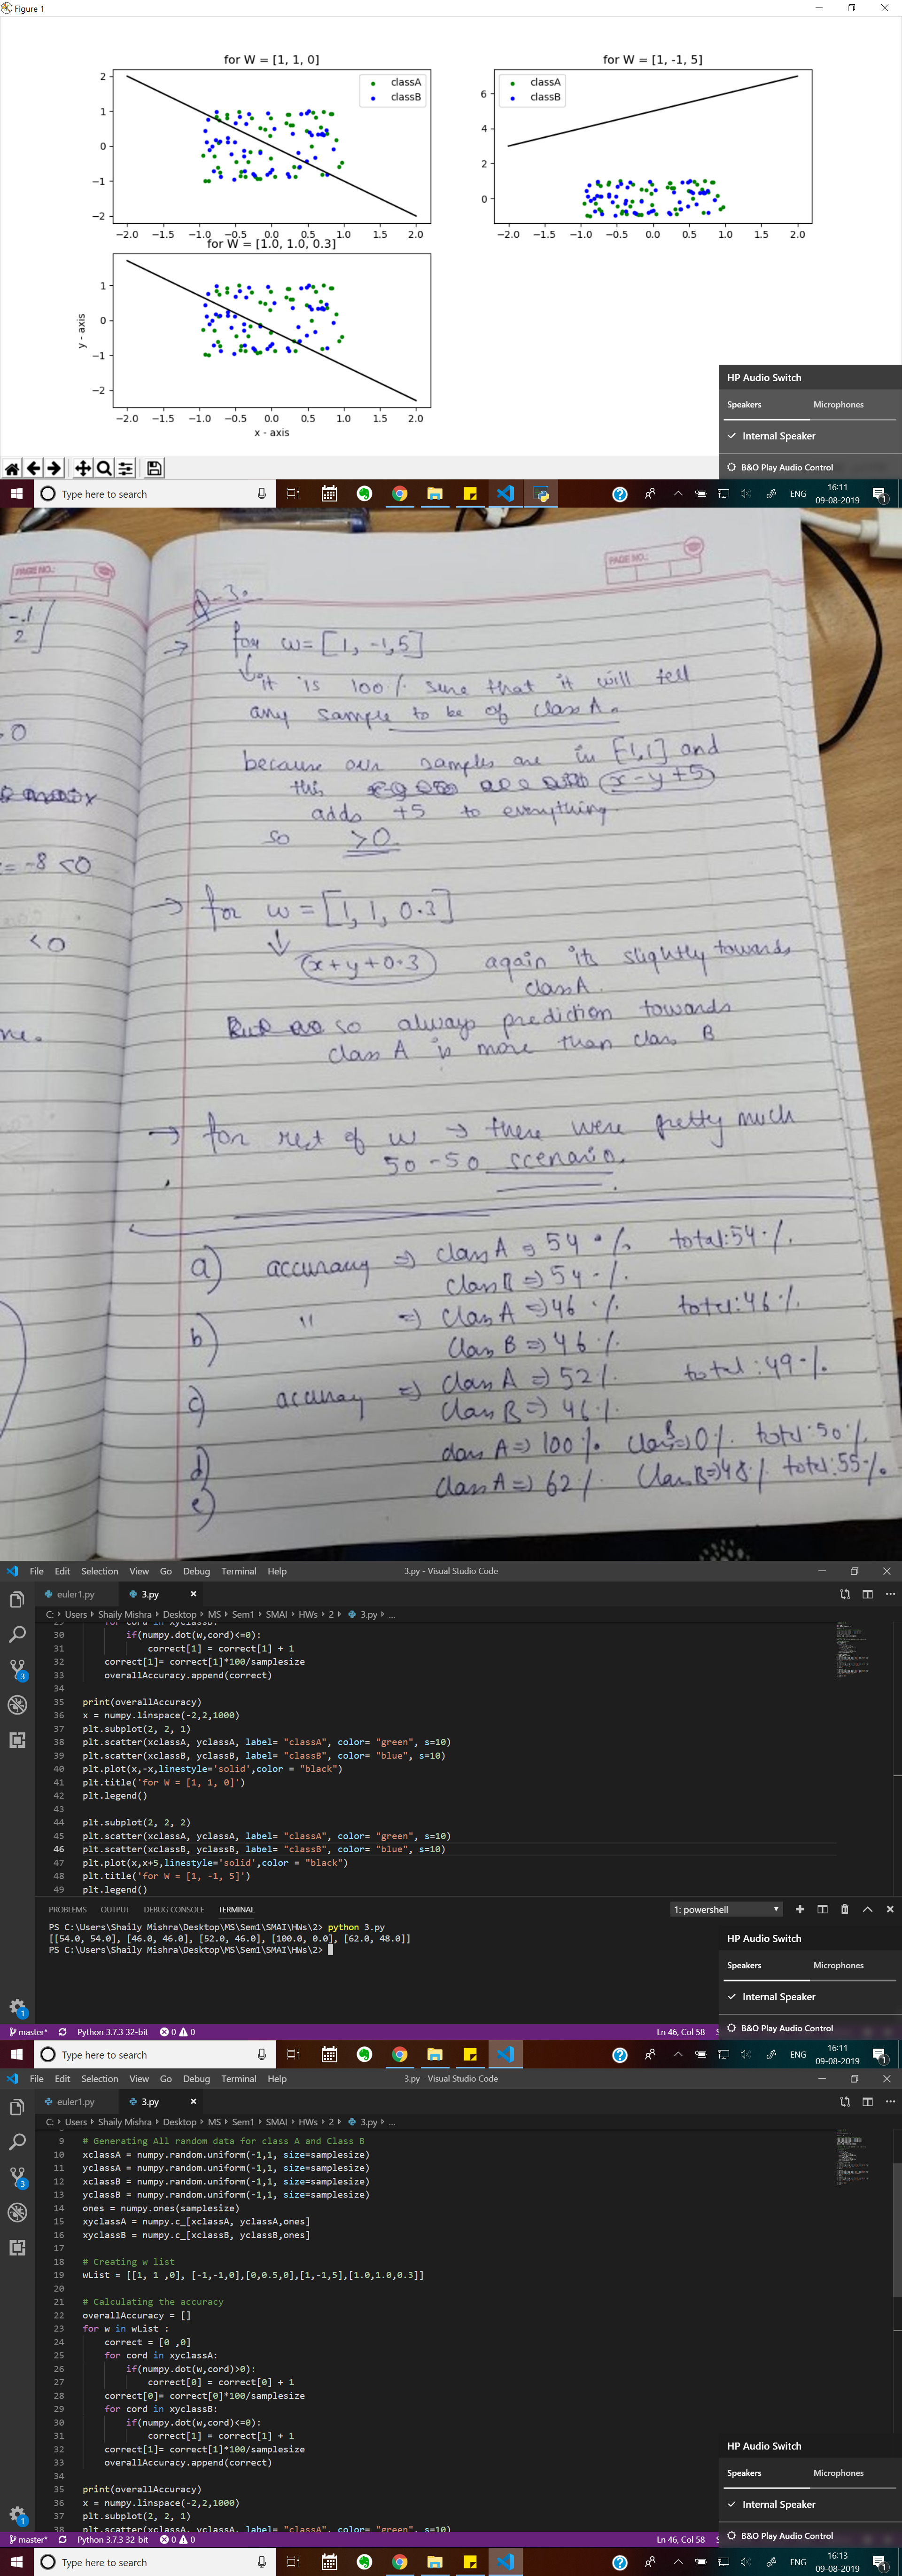 Figure 1
for W = [1, 1, 0]
classA
classB
2
1
0
−1
−2
−2.0 −1.5 −1.0 −0.5 0.0 0.5 1.0 1.5 2.0
for W = [1, -1, 5]
classA
classB
6
4
2
0
−2.0 −1.5 −1.0 −0.5 0.0 0.5 1.0 1.5 2.0
for W = [1.0, 1.0, 0.3]
1
0
−1
−2
y - axis
−2.0 −1.5 −1.0 −0.5 0.0 0.5 1.0 1.5 2.0
x - axis
HP Audio Switch
Speakers Microphones
Internal Speaker
B&O Play Audio Control
Type here to search
ENG
16:11
09-08-2019
1
PAGE NO.:
PAGE NO.:
-.1
2
0
= -8 <0
<0
me.
Q-3.
→ for w = [1, -1,5]
it is 100 % sure that it will tell
any sample to be of class A.
because our samples are in [-1,1] and
this (x-y+5)
adds +5 to everything
so >0
→ for w = [1, 1, 0.3]
x+y+0.3 again its slightly towards
class A.
so always prediction towards
class A is more than class B
→ for rest of w → there were pretty much
50-50 scenario.
a) accuracy ⇒ class A ⇒ 54 % total:54%.
class B ⇒ 54%.
b) " ⇒ class A ⇒ 46 % total:46%.
class B ⇒ 46%.
c) accuracy ⇒ class A ⇒ 52% total:49%.
class B ⇒ 46%.
d) class A ⇒ 100% class B ⇒ 0% total:50%.
e) class A ⇒ 62% class B ⇒ 48% total:55%.
File Edit Selection View Go Debug Terminal Help 3.py - Visual Studio Code
euler1.py 3.py
C: Users Shaily Mishra Desktop MS Sem1 SMAI HWs 2 3.py ...
29 for cord in xyclassB:
30 if(numpy.dot(w,cord)<=0):
31 correct[1] = correct[1] + 1
32 correct[1]= correct[1]*100/samplesize
33 overallAccuracy.append(correct)
34
35 print(overallAccuracy)
36 x = numpy.linspace(-2,2,1000)
37 plt.subplot(2, 2, 1)
38 plt.scatter(xclassA, yclassA, label= "classA", color= "green", s=10)
39 plt.scatter(xclassB, yclassB, label= "classB", color= "blue", s=10)
40 plt.plot(x,-x,linestyle='solid',color = "black")
41 plt.title('for W = [1, 1, 0]')
42 plt.legend()
43
44 plt.subplot(2, 2, 2)
45 plt.scatter(xclassA, yclassA, label= "classA", color= "green", s=10)
46 plt.scatter(xclassB, yclassB, label= "classB", color= "blue", s=10)
47 plt.plot(x,x+5,linestyle='solid',color = "black")
48 plt.title('for W = [1, -1, 5]')
49 plt.legend()
3
PROBLEMS OUTPUT DEBUG CONSOLE TERMINAL 1: powershell
PS C:\Users\Shaily Mishra\Desktop\MS\Sem1\SMAI\HWs\2> python 3.py
[[54.0, 54.0], [46.0, 46.0], [52.0, 46.0], [100.0, 0.0], [62.0, 48.0]]
PS C:\Users\Shaily Mishra\Desktop\MS\Sem1\SMAI\HWs\2>
HP Audio Switch
Speakers Microphones
Internal Speaker
B&O Play Audio Control
1
master* Python 3.7.3 32-bit 0 0 Ln 46, Col 58
Type here to search
ENG
16:11
09-08-2019
1
File Edit Selection View Go Debug Terminal Help 3.py - Visual Studio Code
euler1.py 3.py
C: Users Shaily Mishra Desktop MS Sem1 SMAI HWs 2 3.py ...
9 # Generating All random data for class A and Class B
10 xclassA = numpy.random.uniform(-1,1, size=samplesize)
11 yclassA = numpy.random.uniform(-1,1, size=samplesize)
12 xclassB = numpy.random.uniform(-1,1, size=samplesize)
13 yclassB = numpy.random.uniform(-1,1, size=samplesize)
14 ones = numpy.ones(samplesize)
15 xyclassA = numpy.c_[xclassA, yclassA,ones]
16 xyclassB = numpy.c_[xclassB, yclassB,ones]
17
18 # Creating w list
19 wList = [[1, 1 ,0], [-1,-1,0],[0,0.5,0],[1,-1,5],[1.0,1.0,0.3]]
20
21 # Calculating the accuracy
22 overallAccuracy = []
23 for w in wList :
24 correct = [0 ,0]
25 for cord in xyclassA:
26 if(numpy.dot(w,cord)>0):
27 correct[0] = correct[0] + 1
28 correct[0]= correct[0]*100/samplesize
29 for cord in xyclassB:
30 if(numpy.dot(w,cord)<=0):
31 correct[1] = correct[1] + 1
32 correct[1]= correct[1]*100/samplesize
33 overallAccuracy.append(correct)
34
35 print(overallAccuracy)
36 x = numpy.linspace(-2,2,1000)
37 plt.subplot(2, 2, 1)
38 plt.scatter(xclassA, yclassA, label= "classA", color= "green", s=10)
3
HP Audio Switch
Speakers Microphones
Internal Speaker
B&O Play Audio Control
1
master* Python 3.7.3 32-bit 0 0 Ln 46, Col 58
Type here to search
ENG
16:13
09-08-2019
1